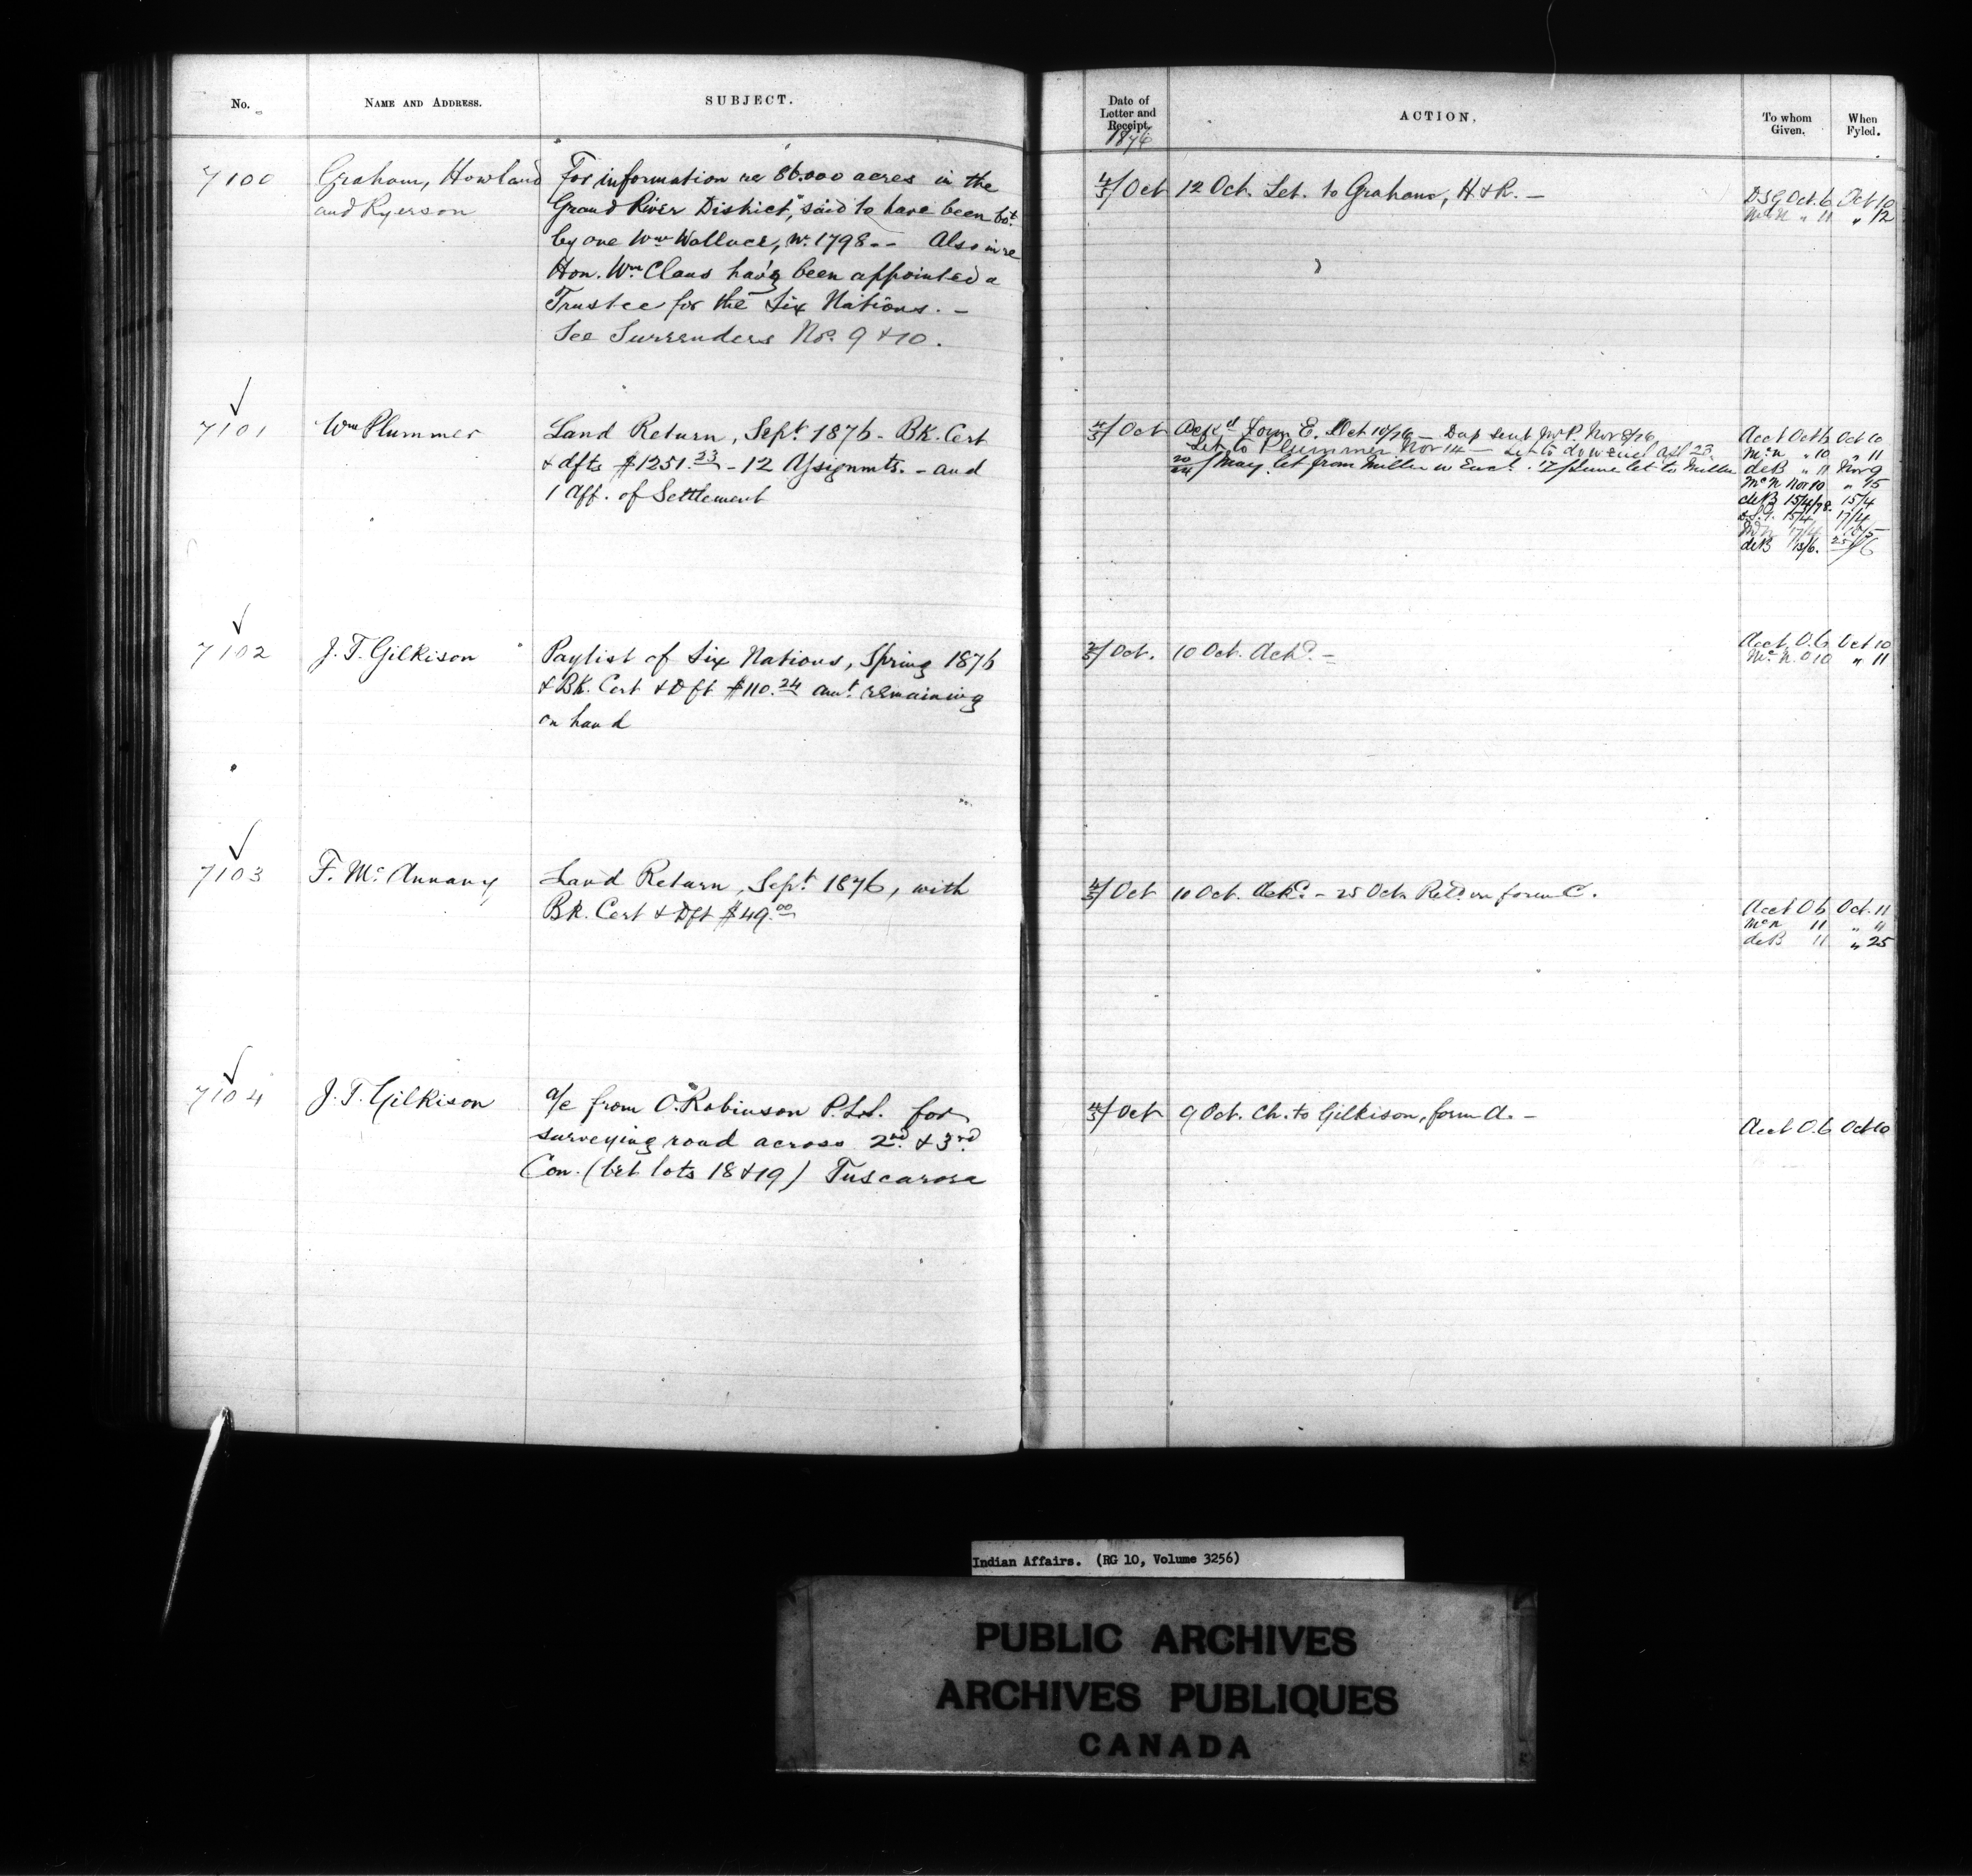 No.
NAME AND ADDRESS.
SUBJECT.
Date of
Letter and
Receipt.
1876
ACTION.
To whom
Given.
When
Fyled.
7100
Graham, Howland
and Ryerson
For information re 86.000 acres in the
Grand River District, "said to have been bot.
by one Wm Wallace, in 1798 - - Also in re
Hon. Wm Claus hav'g been appointed a
Trustee for the Six Nations. -
See Surrenders Nos. 9 & 10.
4/5/ Oct
12 Oct. Let. to Graham, H. & R. -
DSG Oct. 6 Oct 10
McN " 11 " 12
7101
Wm Plummer
Land Return, Sept. 1876 - Bk. Cert
& dfts $1251.23 - 12 Assignmts. - and
1 Aff. of Settlement
4/5/ Oct
Ackd Form E. Oct 10/76 - Dup sent Mr P. Nov 8/76
Let. to Plummer Nov 14 - Let to Apl 23.
May. let from Miller w Encl. 17 June let to Miller
Acct Oct 6 Oct 10
McN " 10 " 11
deB " 11 Nov 9
McN Nov 10 " 15
deB 15/4/78. 15/4
15/4 17/4
McN 17/4
deB 13/6. 25/6
7102
J. T. Gilkison
Paylist of Six Nations, Spring 1876
& Bk. Cert & Dft $110.24 amt remaining
on hand
3/5/ Oct.
10 Oct. Ackd. -
Acct O. 6 Oct 10
McN. O 10 " 11
7103
F. McAnnany
Land Return, Sept 1876, with
Bk. Cert & Dft $49.00
4/5/ Oct
10 Oct. Ackd. - 25 Oct. Retd. on form C.
Acct O 6 Oct. 11
McN 11 " "
deB 11 " 25
7104
J. T. Gilkison
a/c from O. Robinson P.L.S. for
surveying road across 2nd & 3rd
Con. (bet lots 18 & 19) Tuscarora
4/5/ Oct
9 Oct. Ch. to Gilkison, form A. -
Acct O. 6 Oct 10
Indian Affairs. (RG 10, Volume 3256)
PUBLIC ARCHIVES
ARCHIVES PUBLIQUES
CANADA